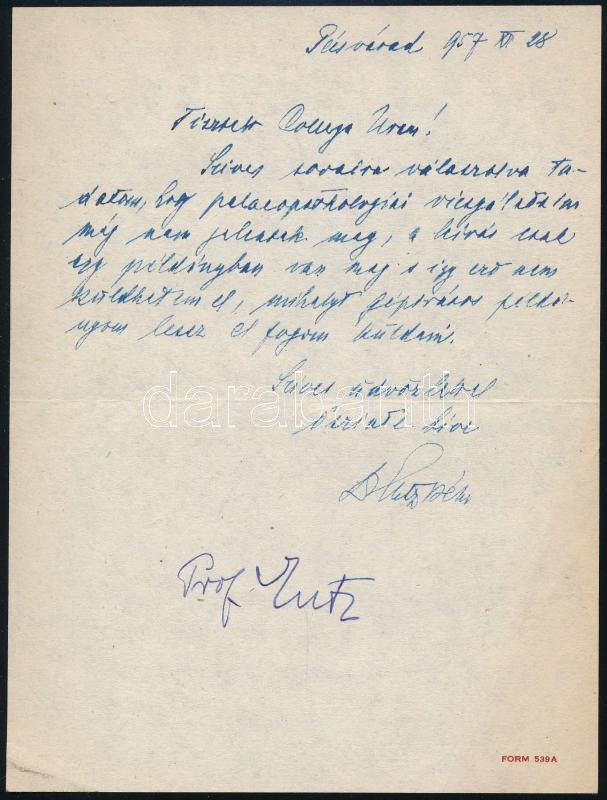 Pécsvárad 957 XI 28
Tisztelt Collega Uram!
Szives soraira válaszolva tu-
datom, hogy palaeopathologiai vizsgálataim
még nem jelentek meg, a leírás csak
egy példányban van meg s így ezt nem
küldhetem el, mihelyt gépírásos példá-
nyom lesz el fogom küldeni.
Szives üdvözlettel
őszinte híve
Dr Entz Béla
Prof. Entz
darabanth
FORM 539A